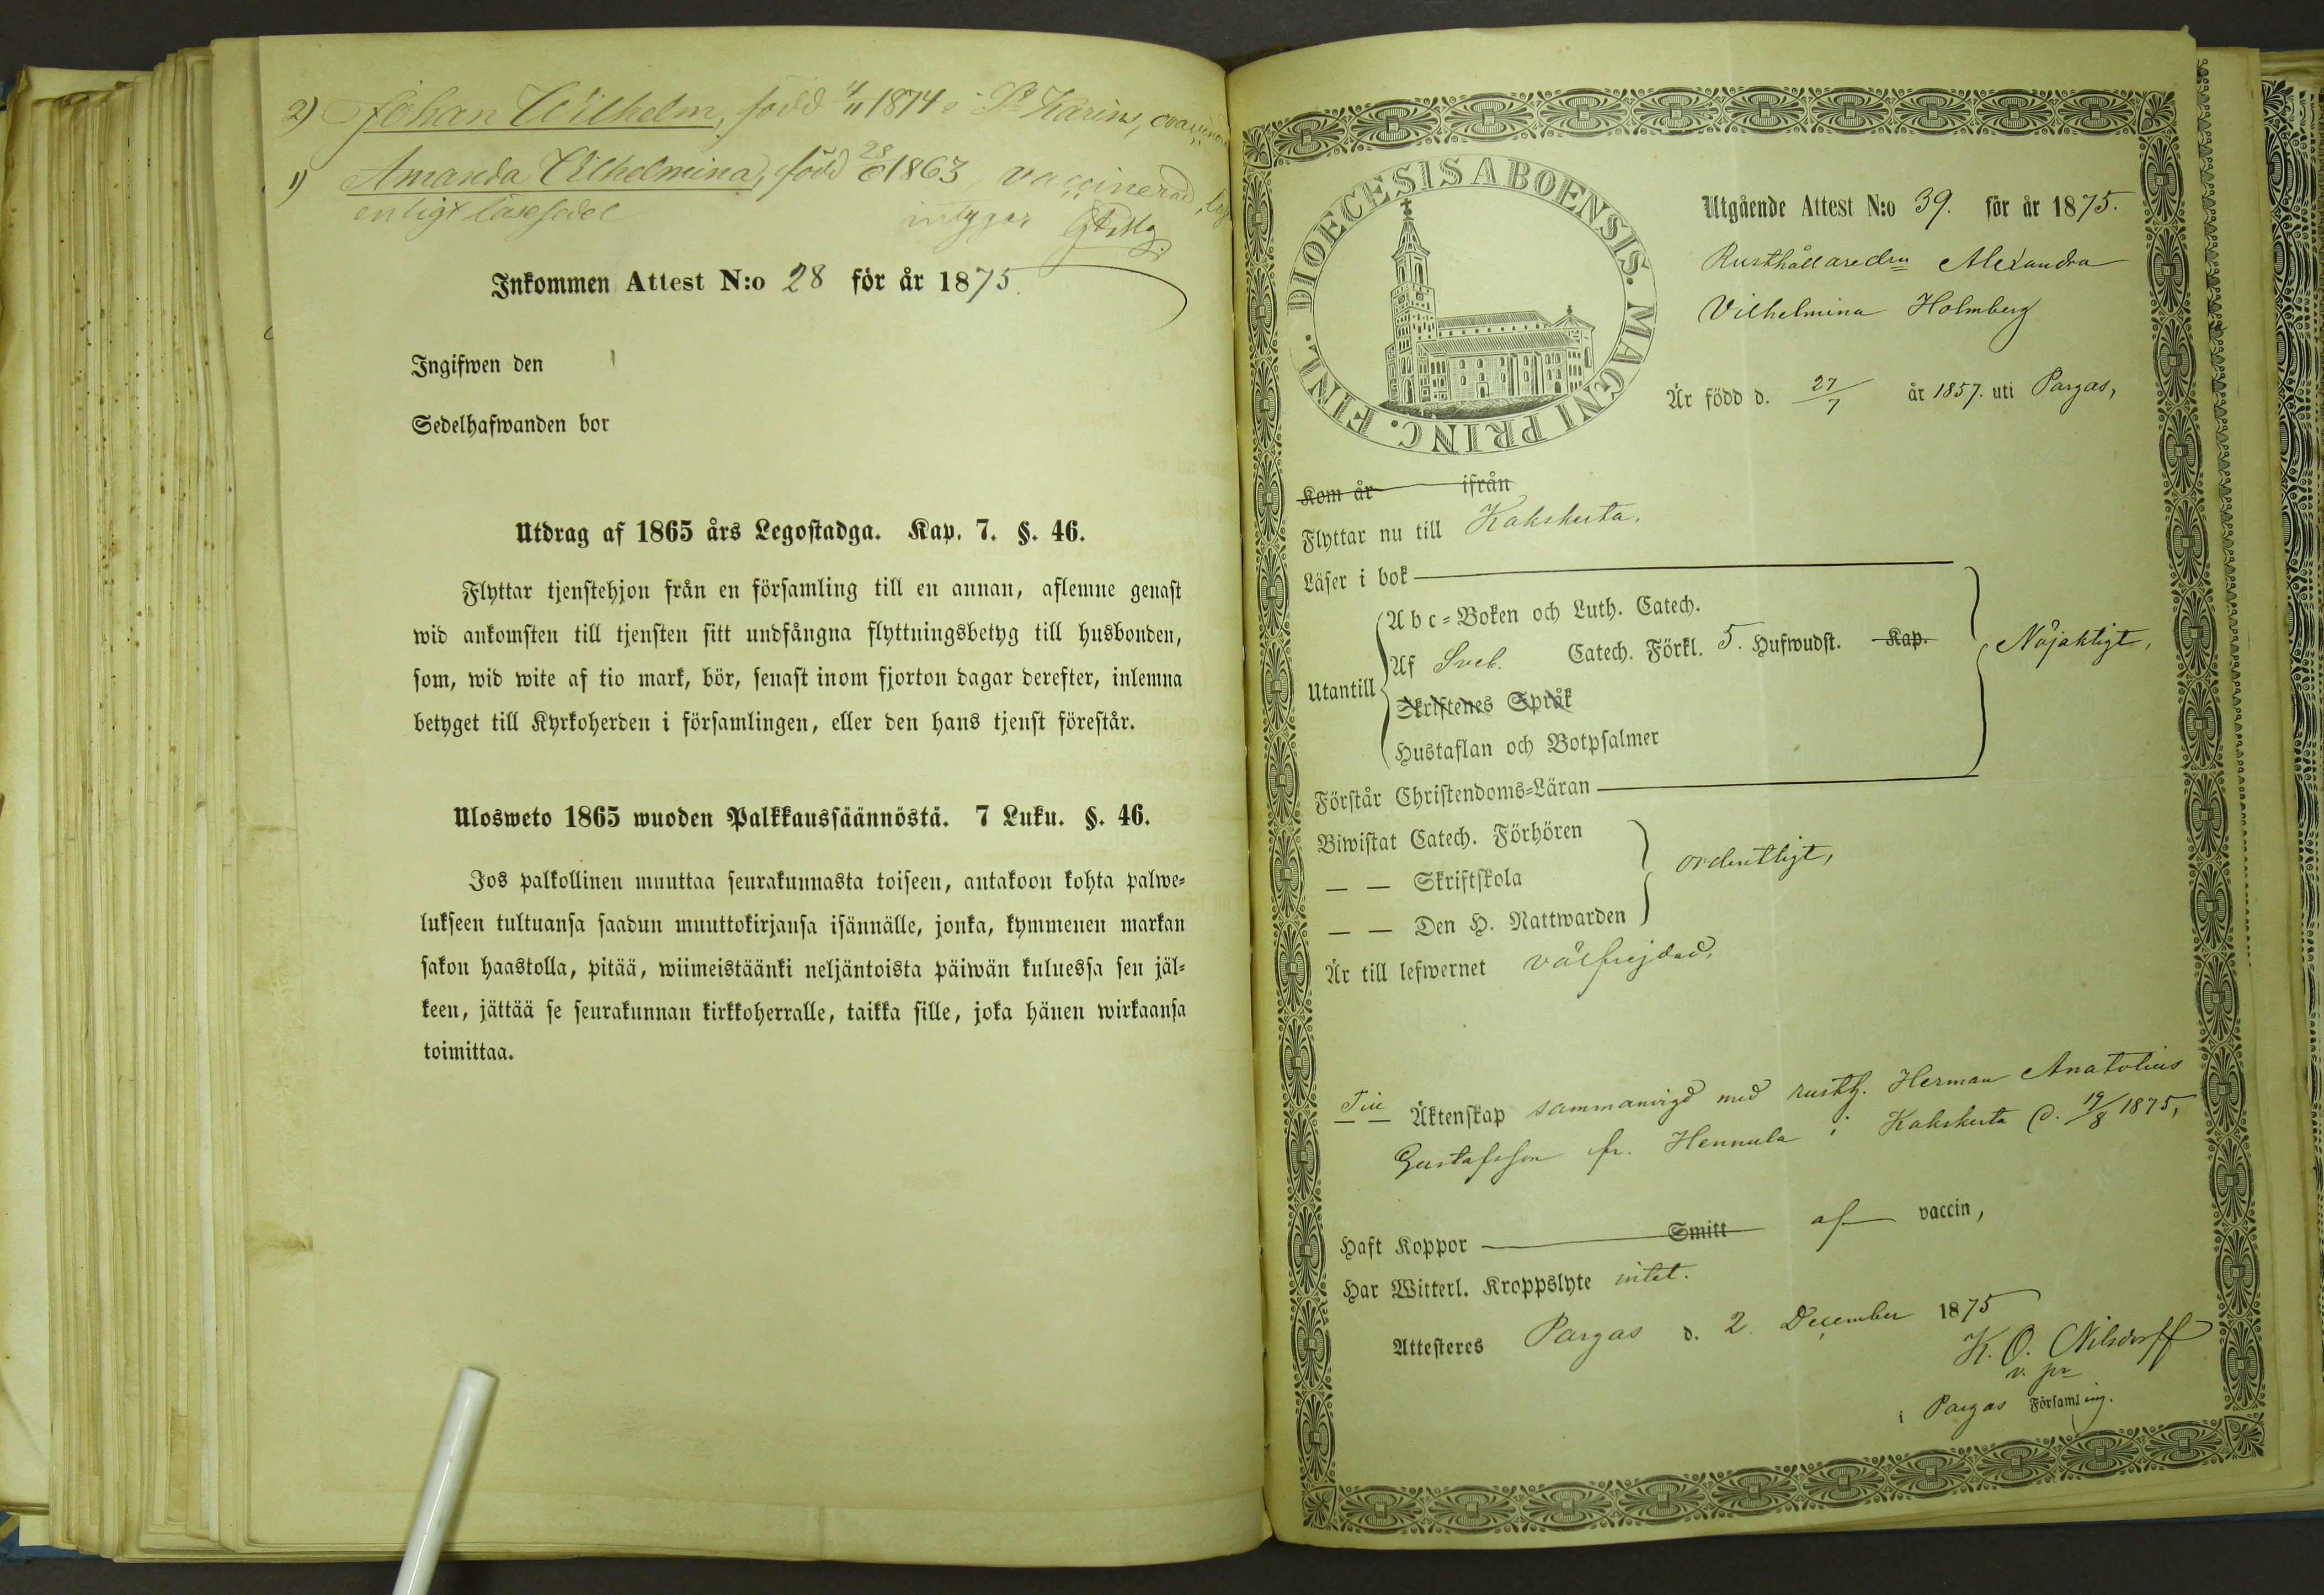 2) Johan Wilhelm, född 4/11 1874 i St Karins, ovaccinerad
1) Amanda Wilhelmina, född 28/6 1863, vaccinerad,
enligt läsesedel intygar
Inkommen Attest N:o 28 för år 1875.
Ingifwen den
Sedelhafwanden bor
Utdrag af 1865 års Legostadga. Kap. 7. §. 46.
Flyttar tjenstehjon från en församling till en annan, aflemne genast
wid ankomsten till tjensten sitt undfångna flyttningsbetyg till husbonden,
som, wid wite af tio mark, bör, senast inom fjorton dagar derefter, inlemna
betyget till Kyrkoherden i församlingen, eller den hans tjenst förestår.
Ulosweto 1865 wuoden Palkkaussäännöstä. 7 Luku. §. 46.
Jos palkollinen muuttaa seurakunnasta toiseen, antakoon kohta palwe-
lukseen tultuansa saadun muuttokirjansa isännälle, jonka, kymmenen markan
sakon haastolla, pitää, wiimeistäänki neljäntoista päiwän kuluessa sen jäl-
keen, jättää se seurakunnan kirkkoherralle, taikka sille, joka hänen wirkaansa
toimittaa.
DIOECESIS ABOENSIS. MAGNI PRINC. FINL.
Utgående Attest N:o 39. för år 1875.
Rusthållaredrn Alexandra
Vilhelmina Holmberg
Är född d. 27/7 år 1857. uti Pargas,
Kom år ifrån
Flyttar nu till Kakskerta,
Läser i bok
Utantill
Abc-Boken och Luth. Catech.
Af Sveb. Catech. Förkl. 5. Hufwudst. Kap.
Skriftenes Språk
Hustaflan och Botpsalmer
Nöjaktigt,
Förstår Christendoms-Läran
Biwistat Catech. Förhören
— — Skriftskola
— — Den H. Nattwarden
ordentligt,
Är till lefwernet välfrejdad,
Till Äktenskap sammanvigd med rusth. Herman Anatolius
Gustafsson fr. Hennula i Kakskerta d. 19/8 1875,
Haft Koppor Smitt af vaccin,
Har Witterl. Kroppslyte intet.
Attesteres Pargas d. 2 December 1875
K. O. Nilsdorff
v. pr
i Pargas Församling.